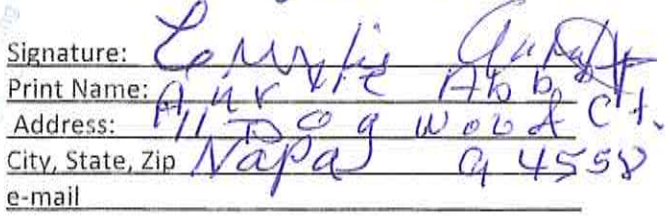 Signature:
Print Name: Abb
Address: 11 Dogwood Ct.
City, State, Zip Napa 94558
e-mail